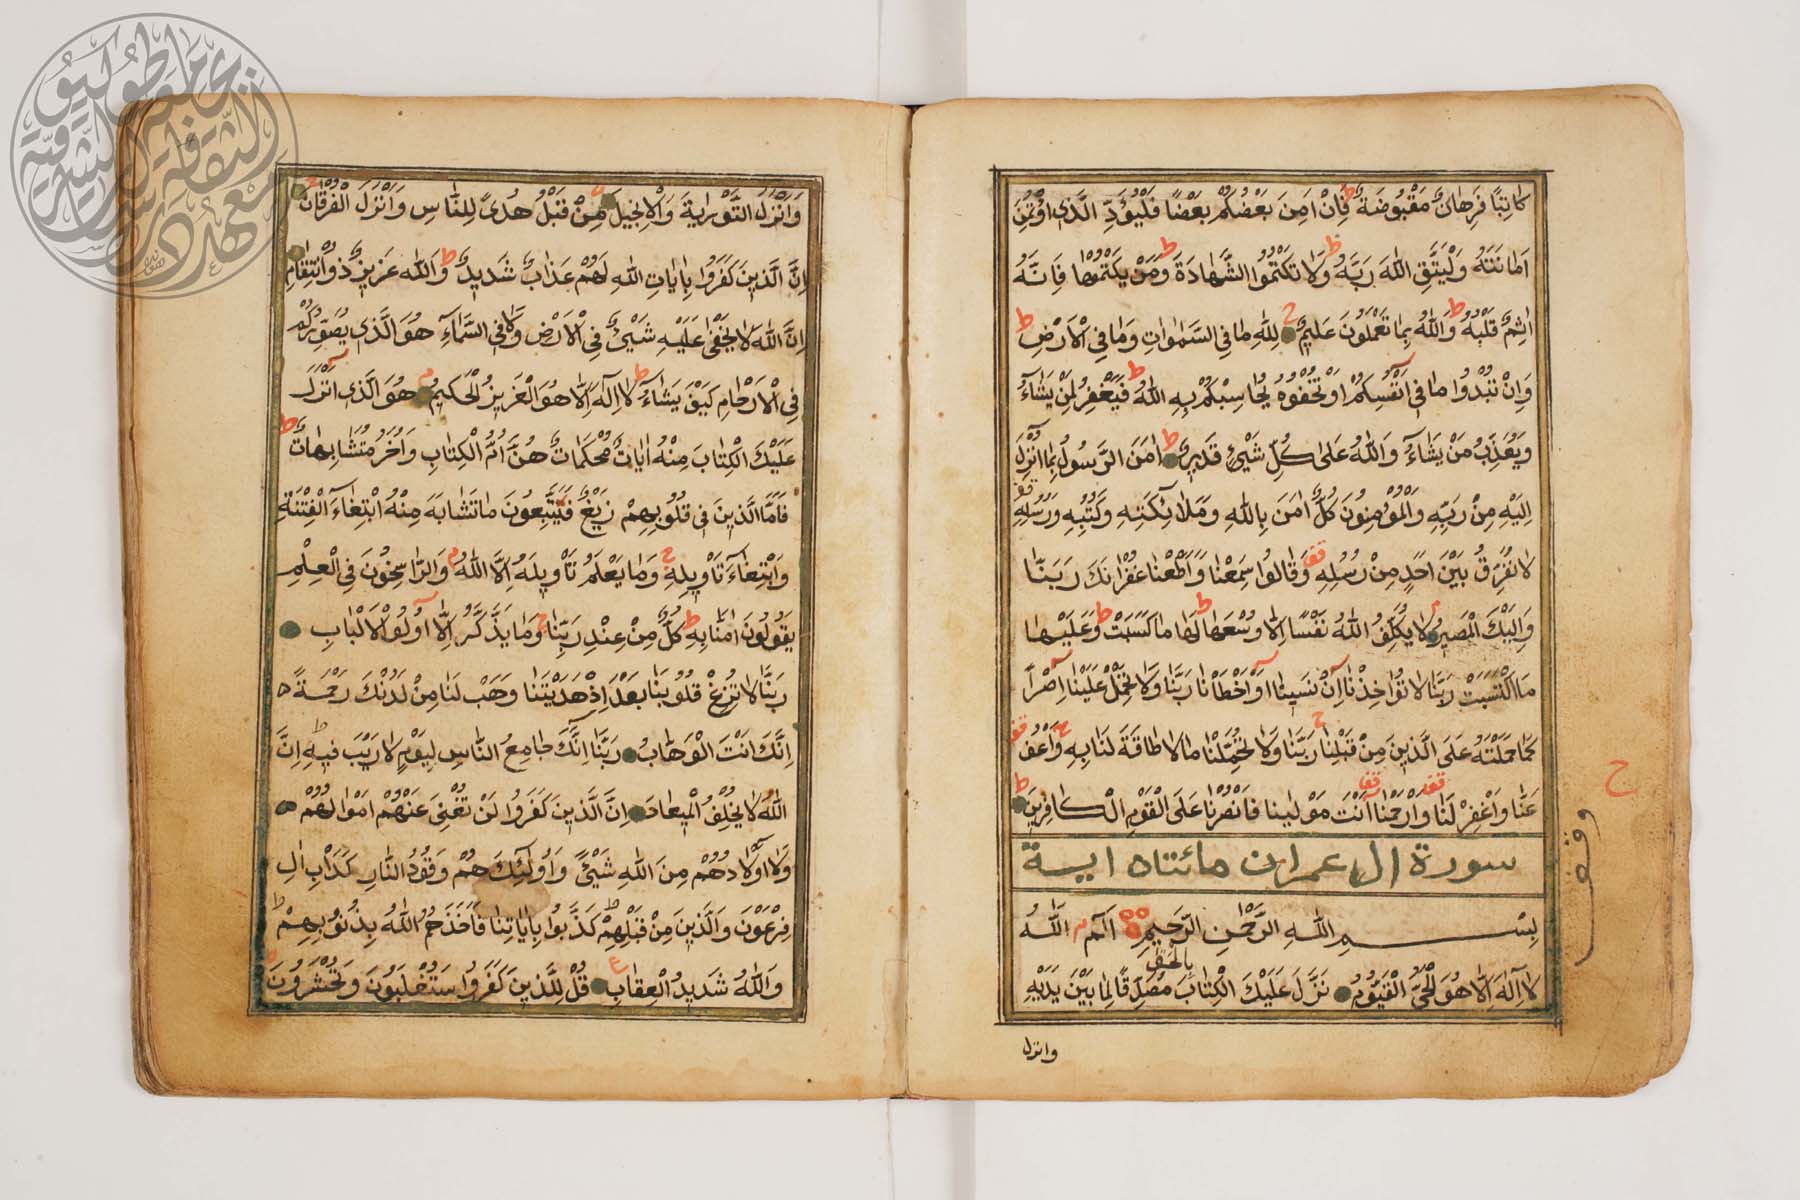 كَاتِبًا فَرِهَانٌ مَقْبُوضَةٌ ط فَاِنْ اَمِنَ بَعْضُكُمْ بَعْضًا فَلْيُؤَدِّ الَّذِي اؤْتُمِنَ
اَمَانَتَهُ وَلْيَتَّقِ اللّٰهَ رَبَّهُ ط وَلَا تَكْتُمُوا الشَّهَادَةَ ط وَمَنْ يَكْتُمْهَا فَاِنَّهُ
اٰثِمٌ قَلْبُهُ ط وَاللّٰهُ بِمَا تَعْمَلُونَ عَلِيمٌ ح لِلّٰهِ مَا فِي السَّمٰوَاتِ وَمَا فِي الْاَرْضِ ط
وَاِنْ تُبْدُوا مَا فِي اَنْفُسِكُمْ اَوْ تُخْفُوهُ يُحَاسِبْكُمْ بِهِ اللّٰهُ ط فَيَغْفِرُ لِمَنْ يَشَاءُ
وَيُعَذِّبُ مَنْ يَشَاءُ وَاللّٰهُ عَلَى كُلِّ شَيْءٍ قَدِيرٌ ط اٰمَنَ الرَّسُولُ بِمَا اُنْزِلَ
اِلَيْهِ مِنْ رَبِّهِ وَالْمُؤْمِنُونَ كُلٌّ اٰمَنَ بِاللّٰهِ وَمَلَائِكَتِهِ وَكُتُبِهِ وَرُسُلِهِ قف
لَا نُفَرِّقُ بَيْنَ اَحَدٍ مِنْ رُسُلِهِ قف وَقَالُوا سَمِعْنَا وَاَطَعْنَا غُفْرَانَكَ رَبَّنَا
وَاِلَيْكَ الْمَصِيرُ م لَا يُكَلِّفُ اللّٰهُ نَفْسًا اِلَّا وُسْعَهَا ط لَهَا مَا كَسَبَتْ ط وَعَلَيْهَا
مَا اكْتَسَبَتْ رَبَّنَا لَا تُؤَاخِذْنَا اِنْ نَسِينَا اَوْ اَخْطَاْنَا رَبَّنَا وَلَا تَحْمِلْ عَلَيْنَا اِصْرًا
كَمَا حَمَلْتَهُ عَلَى الَّذِينَ مِنْ قَبْلِنَا ح رَبَّنَا وَلَا تُحَمِّلْنَا مَا لَا طَاقَةَ لَنَا بِهِ ح وَاعْفُ قف
عَنَّا وَاغْفِرْ لَنَا قف وَارْحَمْنَا قف اَنْتَ مَوْلٰينَا فَانْصُرْنَا عَلَى الْقَوْمِ الْكَافِرِينَ ط
سورة ال عمران مائتان اية
بِسْمِ اللّٰهِ الرَّحْمٰنِ الرَّحِيمِ الٓمٓ م اَللّٰهُ
لَا اِلٰهَ اِلَّا هُوَ الْحَيُّ الْقَيُّومُ نَزَّلَ عَلَيْكَ الْكِتَابَ بِالْحَقِّ مُصَدِّقًا لِمَا بَيْنَ يَدَيْهِ
وانزل
ح
وقف
وَاَنْزَلَ التَّوْرٰيةَ وَالْاِنْجِيلَ مِنْ قَبْلُ هُدًى لِلنَّاسِ وَاَنْزَلَ الْفُرْقَانَ
اِنَّ الَّذِينَ كَفَرُوا بِاٰيَاتِ اللّٰهِ لَهُمْ عَذَابٌ شَدِيدٌ ط وَاللّٰهُ عَزِيزٌ ذُو انْتِقَامٍ
اِنَّ اللّٰهَ لَا يَخْفٰى عَلَيْهِ شَيْءٌ فِي الْاَرْضِ وَلَا فِي السَّمَاءِ هُوَ الَّذِي يُصَوِّرُكُمْ
فِي الْاَرْحَامِ كَيْفَ يَشَاءُ ط لَا اِلٰهَ اِلَّا هُوَ الْعَزِيزُ الْحَكِيمُ م هُوَ الَّذِي اَنْزَلَ
عَلَيْكَ الْكِتَابَ مِنْهُ اٰيَاتٌ مُحْكَمَاتٌ هُنَّ اُمُّ الْكِتَابِ وَاُخَرُ مُتَشَابِهَاتٌ ط
فَاَمَّا الَّذِينَ فِي قُلُوبِهِمْ زَيْغٌ فَيَتَّبِعُونَ مَا تَشَابَهَ مِنْهُ ابْتِغَاءَ الْفِتْنَةِ
وَابْتِغَاءَ تَأْوِيلِهِ ح وَمَا يَعْلَمُ تَأْوِيلَهُ اِلَّا اللّٰهُ م وَالرَّاسِخُونَ فِي الْعِلْمِ
يَقُولُونَ اٰمَنَّا بِهِ ط كُلٌّ مِنْ عِنْدِ رَبِّنَا ح وَمَا يَذَّكَّرُ اِلَّا اُولُوا الْاَلْبَابِ
رَبَّنَا لَا تُزِغْ قُلُوبَنَا بَعْدَ اِذْ هَدَيْتَنَا وَهَبْ لَنَا مِنْ لَدُنْكَ رَحْمَةً
اِنَّكَ اَنْتَ الْوَهَّابُ رَبَّنَا اِنَّكَ جَامِعُ النَّاسِ لِيَوْمٍ لَا رَيْبَ فِيهِ ط اِنَّ
اللّٰهَ لَا يُخْلِفُ الْمِيعَادَ اِنَّ الَّذِينَ كَفَرُوا لَنْ تُغْنِيَ عَنْهُمْ اَمْوَالُهُمْ
وَلَا اَوْلَادُهُمْ مِنَ اللّٰهِ شَيْئًا وَاُولٰئِكَ هُمْ وَقُودُ النَّارِ كَدَاْبِ اٰلِ
فِرْعَوْنَ وَالَّذِينَ مِنْ قَبْلِهِمْ ط كَذَّبُوا بِاٰيَاتِنَا فَاَخَذَهُمُ اللّٰهُ بِذُنُوبِهِمْ ط
وَاللّٰهُ شَدِيدُ الْعِقَابِ ع قُلْ لِلَّذِينَ كَفَرُوا سَتُغْلَبُونَ وَتُحْشَرُونَ